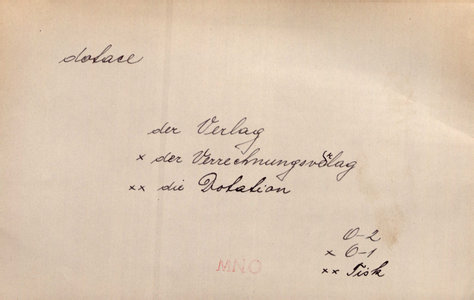 dotace
der Verlag
× der Verrechnungsverlag
×× die Dotation
0-2
× 0-1
×× Tisk
MNO